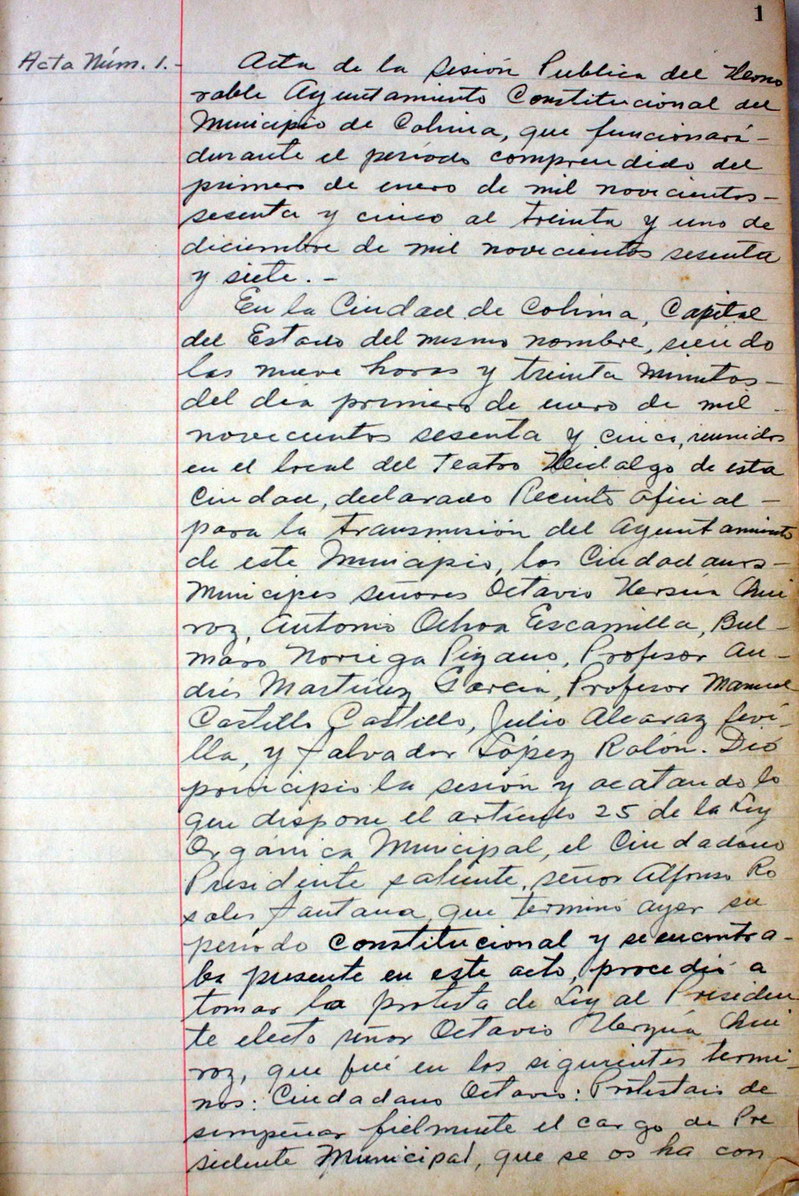 1
Acta Núm. 1.-
Acta de la sesión Publica del Hono
rable Ayuntamiento Constitucional del
Municipio de Colima, que funcionará-
durante el período comprendido del
primero de enero de mil novecientos-
sesenta y cinco al treinta y uno de
diciembre de mil novecientos sesenta
y siete.-
En la Ciudad de Colima, Capital
del Estado del mismo nombre, siendo
las nueve horas y treinta minutos-
del día primero de enero de mil-
novecientos sesenta y cinco, reunidos
en el local del Teatro Hidalgo de esta
Ciudad, declarado Recinto oficial-
para la transmisión del Ayuntamiento
de este Municipio, los Ciudadanos-
Municipes señores Octavio
roz, Antonio Ochoa Escamilla, Bul-
maro Noriega Pizano, Profesor An-
drés Martínez García, Profesor Manuel
Castillo Castillo, Julio Alcaraz Sevi-
lla, y Salvador López Rolón. Dió
principio la sesión y acatando lo
que dispone el artículo 25 de la Ley
Orgánica Municipal, el Ciudadano
Presidente saliente, señor Alfonso Ro
sales Santana, que terminó ayer su
período constitucional y se encontra-
ba presente en este acto, procedió a
tomar la protesta de Ley al Presiden
te electo señor Octavio
roz, que fué en los siguientes térmi-
nos: Ciudadano Octavio: Protestais de
sempeñar fielmente el cargo de Pre
sidente Municipal, que se os ha con